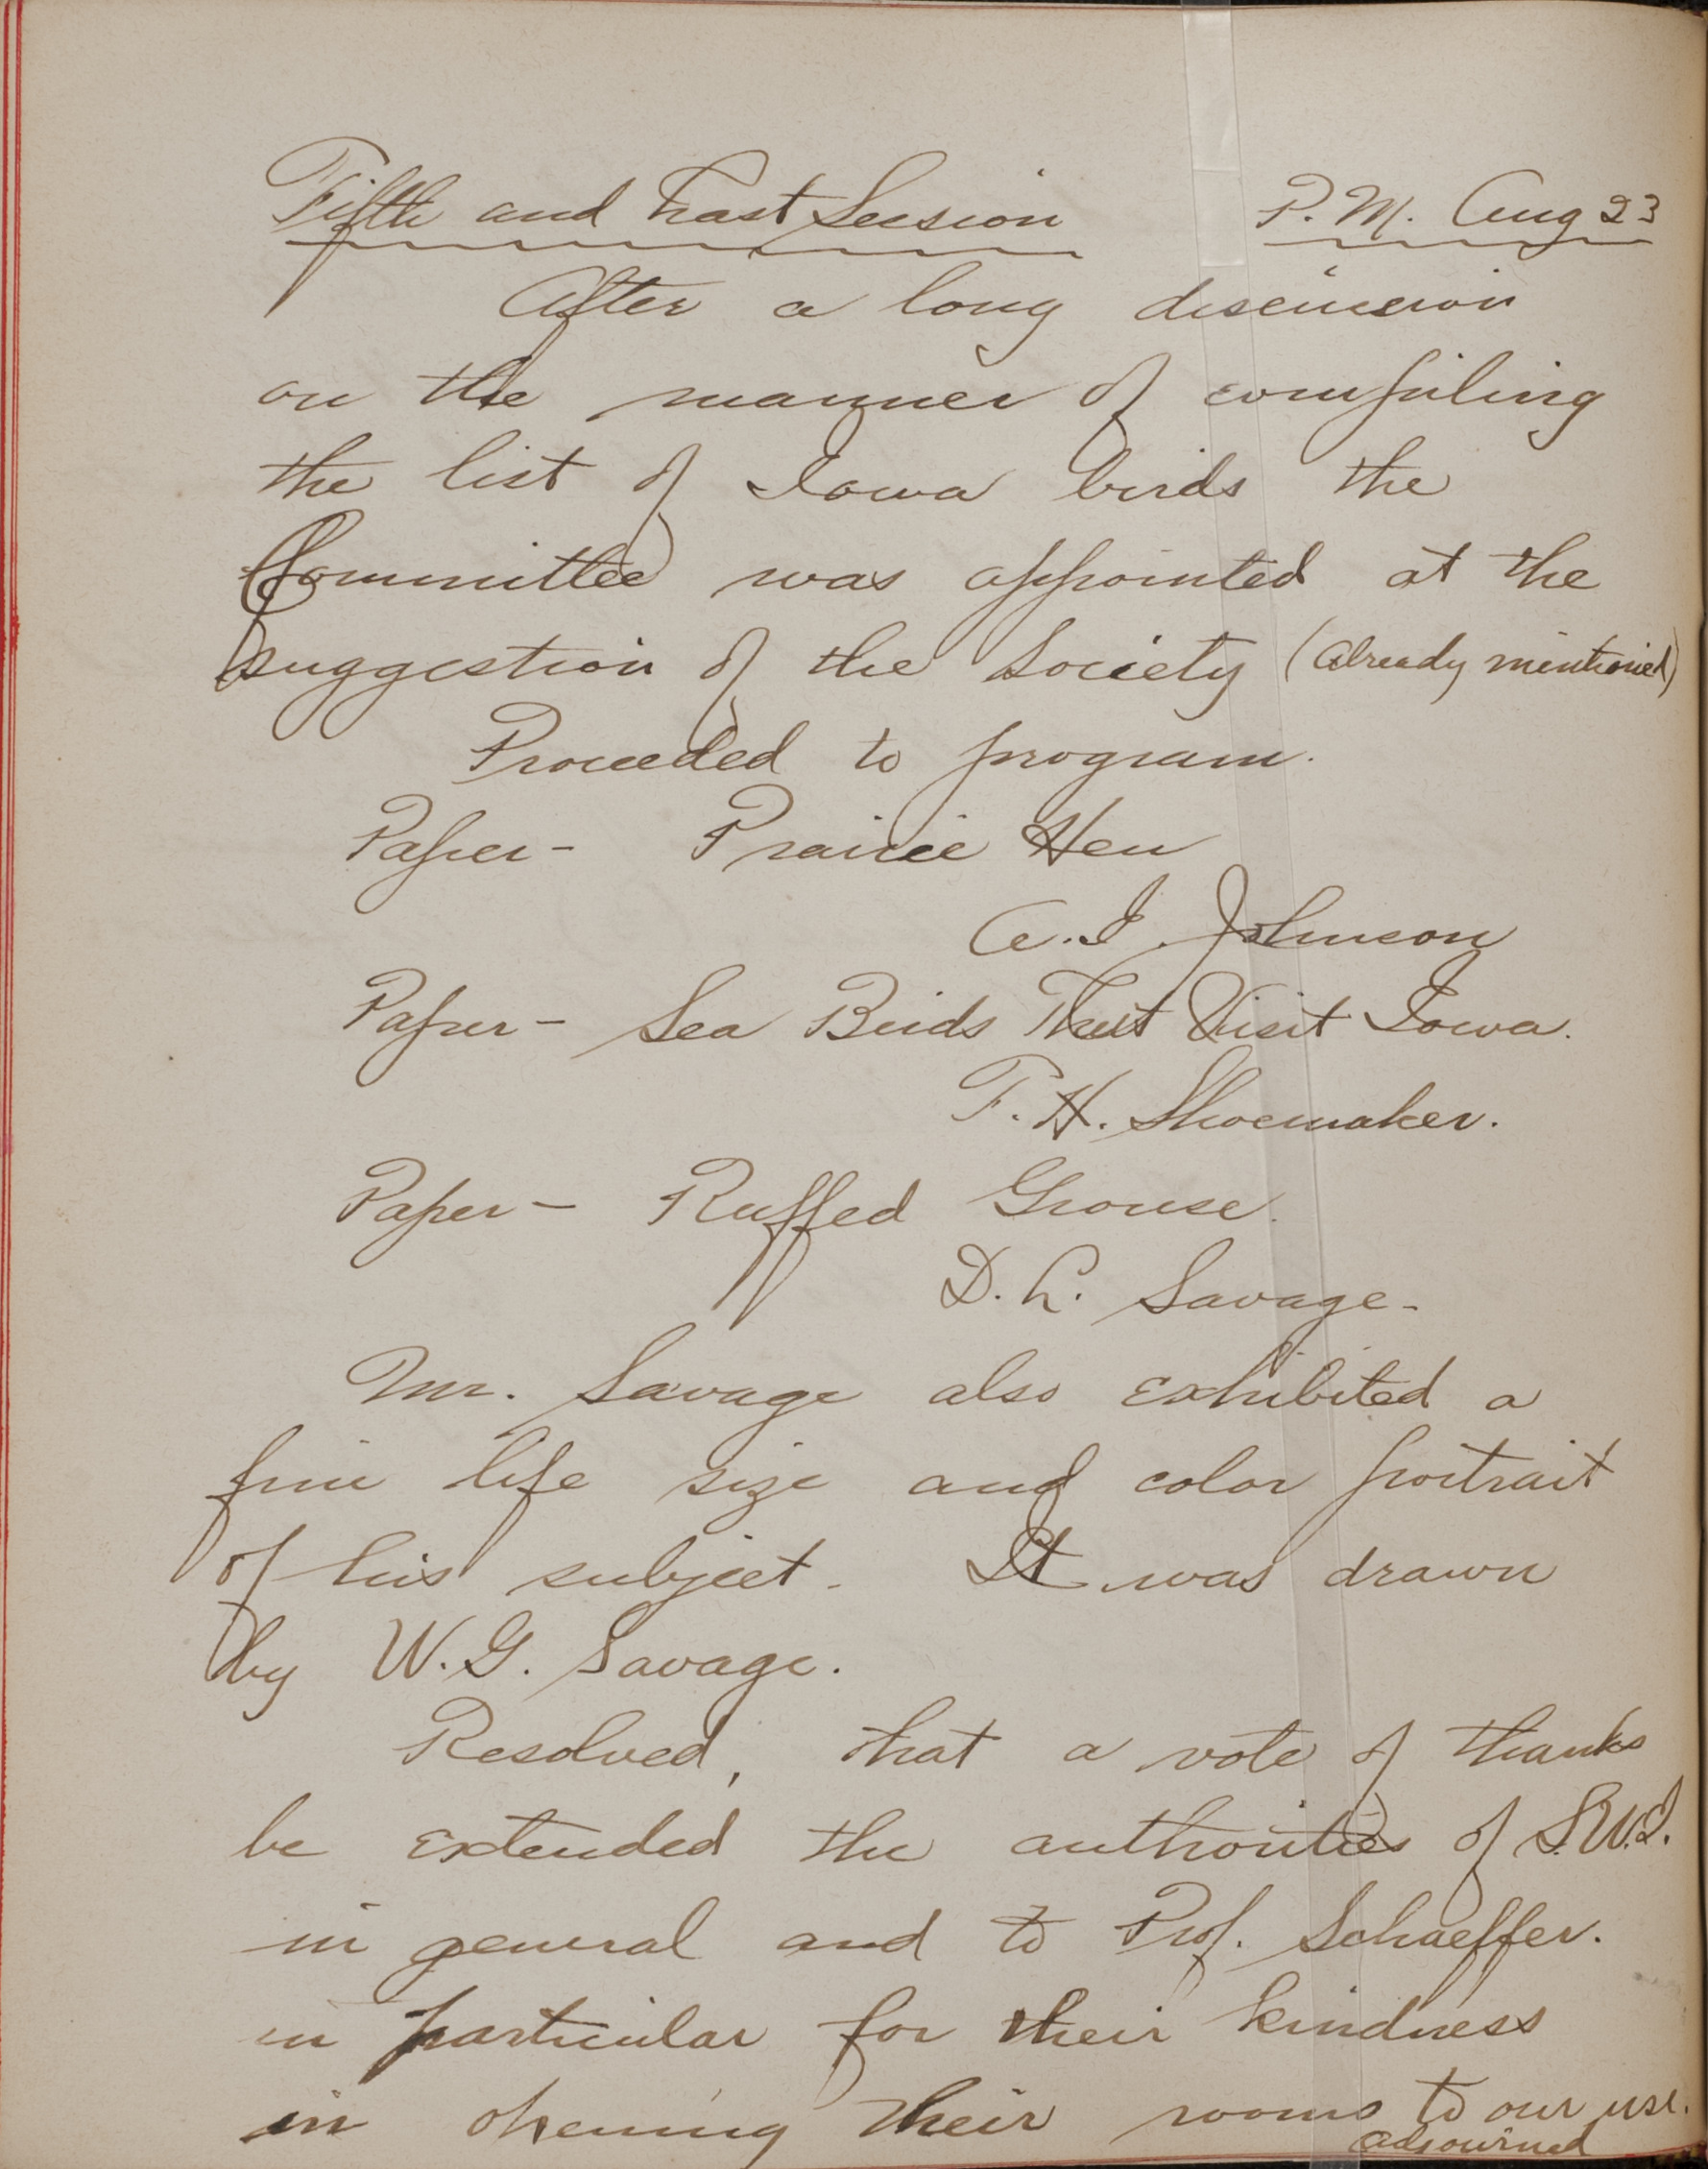 Fifth and Last Session P.M. Aug 23
After a long discussion
on the manner of compiling
the list of Iowa birds the
Committee was appointed at the
suggestion of the Society (already mentioned)
Proceeded to program.
Paper- Prairie Hen
A.I. Johnson
Paper- Sea Birds That Visit Iowa.
F. H. Shoemaker.
Paper- Ruffed Grouse.
D. L. Savage-
Mr. Savage also exhibited a
fine life size and color portrait
of his subject. It was drawn
by W.G. Savage.
Resolved, that a vote of thanks
be extended the authorities of S.U.I.
in general and to Prof. Schaeffer.
in particular for their kindness
in opening their rooms to our use.
adjourned